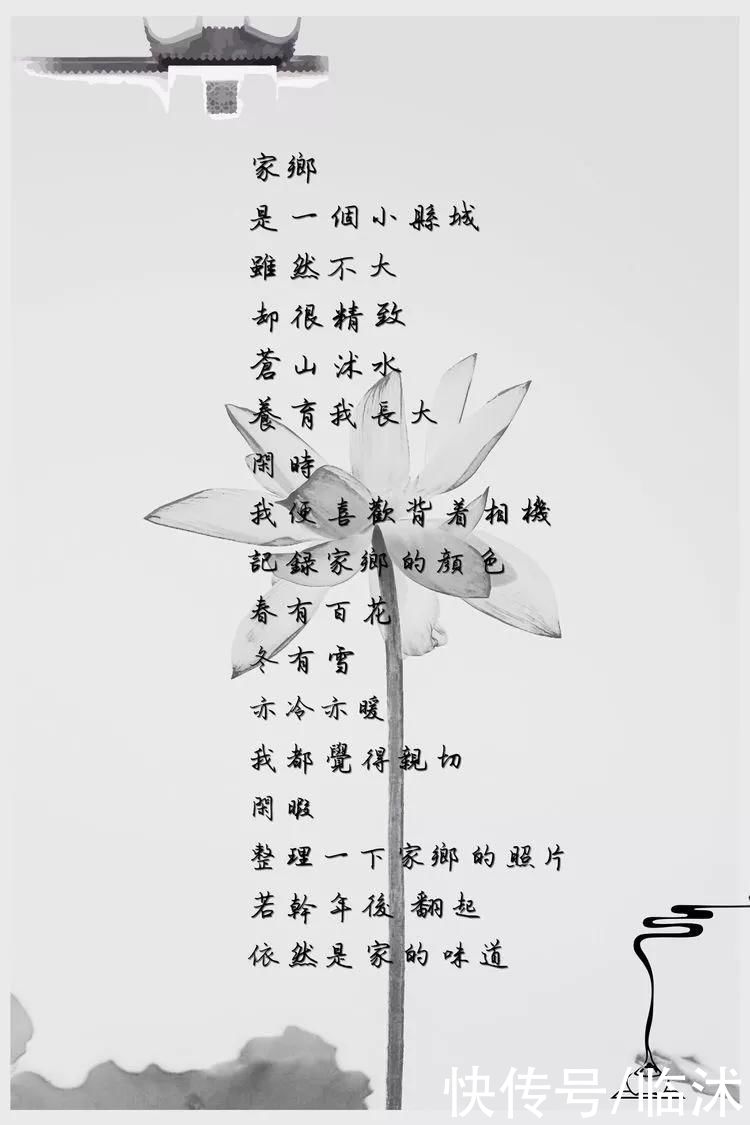 家鄉
是一個小縣城
雖然不大
却很精致
蒼山沭水
養育我長大
閑時
我便喜歡背着相機
記録家鄉的顔色
春有百花
冬有雪
亦冷亦暖
我都覺得親切
閑暇
整理一下家鄉的照片
若幹年後翻起
依然是家的味道
快传号/临沭